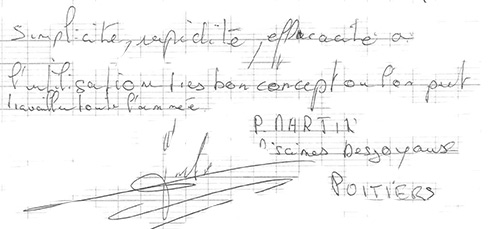 Simplicité, rapidité, efficacité a
l'utilisation très bon concept ou l'on peut
travailler toute l'année
P. MARTIN
Piscines Desjoyaux
POITIERS